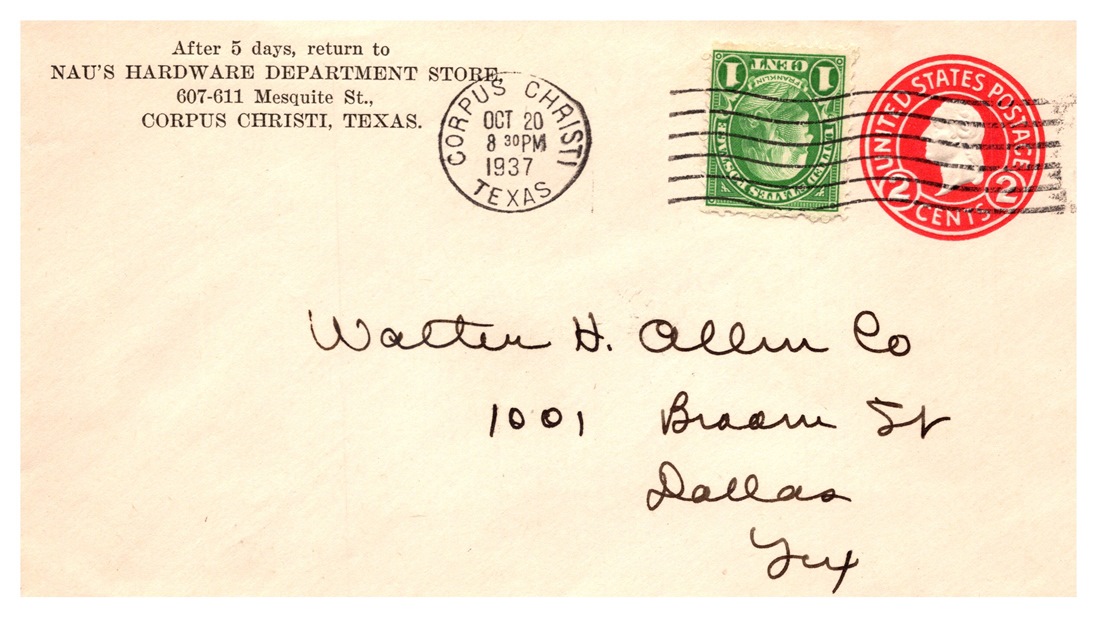 After 5 days, return to
NAU'S HARDWARE DEPARTMENT STORE,
607-611 Mesquite St.,
CORPUS CHRISTI, TEXAS.
CORPUS CHRISTI
OCT 20
8 30 PM
1937
TEXAS
1 CENT 1
FRANKLIN
UNITED STATES POSTAGE
UNITED STATES POSTAGE
2 CENTS 2
Walter H. Allen Co
1001 Broom St
Dallas
Tex